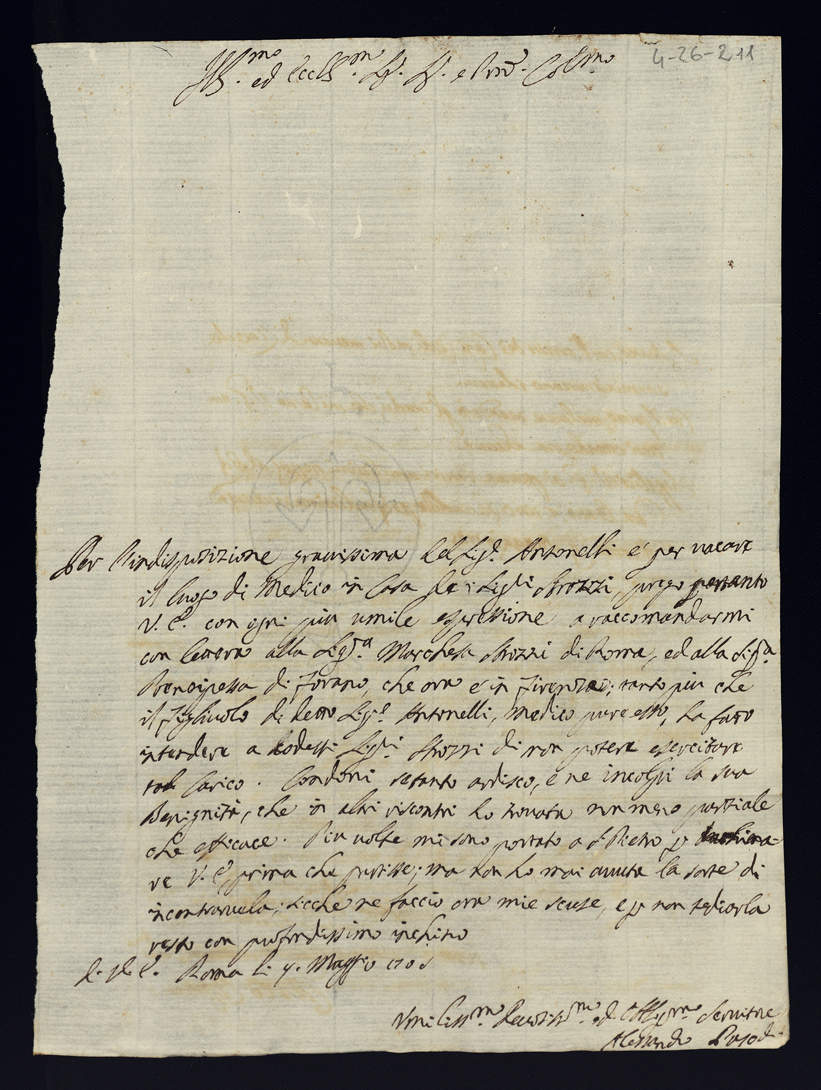 4-26-211
Ill.mo ed Ecc.mo Sig. Sig. e Pron. Col.mo
Per l'indisposizione gravissima del Sig.r Antonelli è per vacare
il luogo di Medico in Casa de i Sig.ri Strozzi, prego pertanto
V. E. con ogni più umile espressione a raccomandarmi
con lettera alla Sig.ra Marchesa Strozzi di Roma, ed alla Sig.ra
Principessa di Forano, che ora è in Firenze; tanto più che
il figliuolo di detto Sig.r Antonelli, Medico pure esso, ha fatto
intendere a codesti Sig.ri Strozzi di non potere esercitare
tal Carico. Condoni se tanto ardisco, e ne incolpi la sua
Benignità, che in altri riscontri ho trovata non meno parziale
che efficace. Più volte mi sono portato a S. Pietro p
re V. E. prima che partisse; ma non ho mai avuta la sorte di
incontrarvela; sicche ne faccio ora mie scuse, e p non tediarla
resto con profondissimo inchino
di V. E. Roma li 4. Maggio
Umiliss.mo Devotiss.mo ed Obblig.mo Servitore
Alessandro